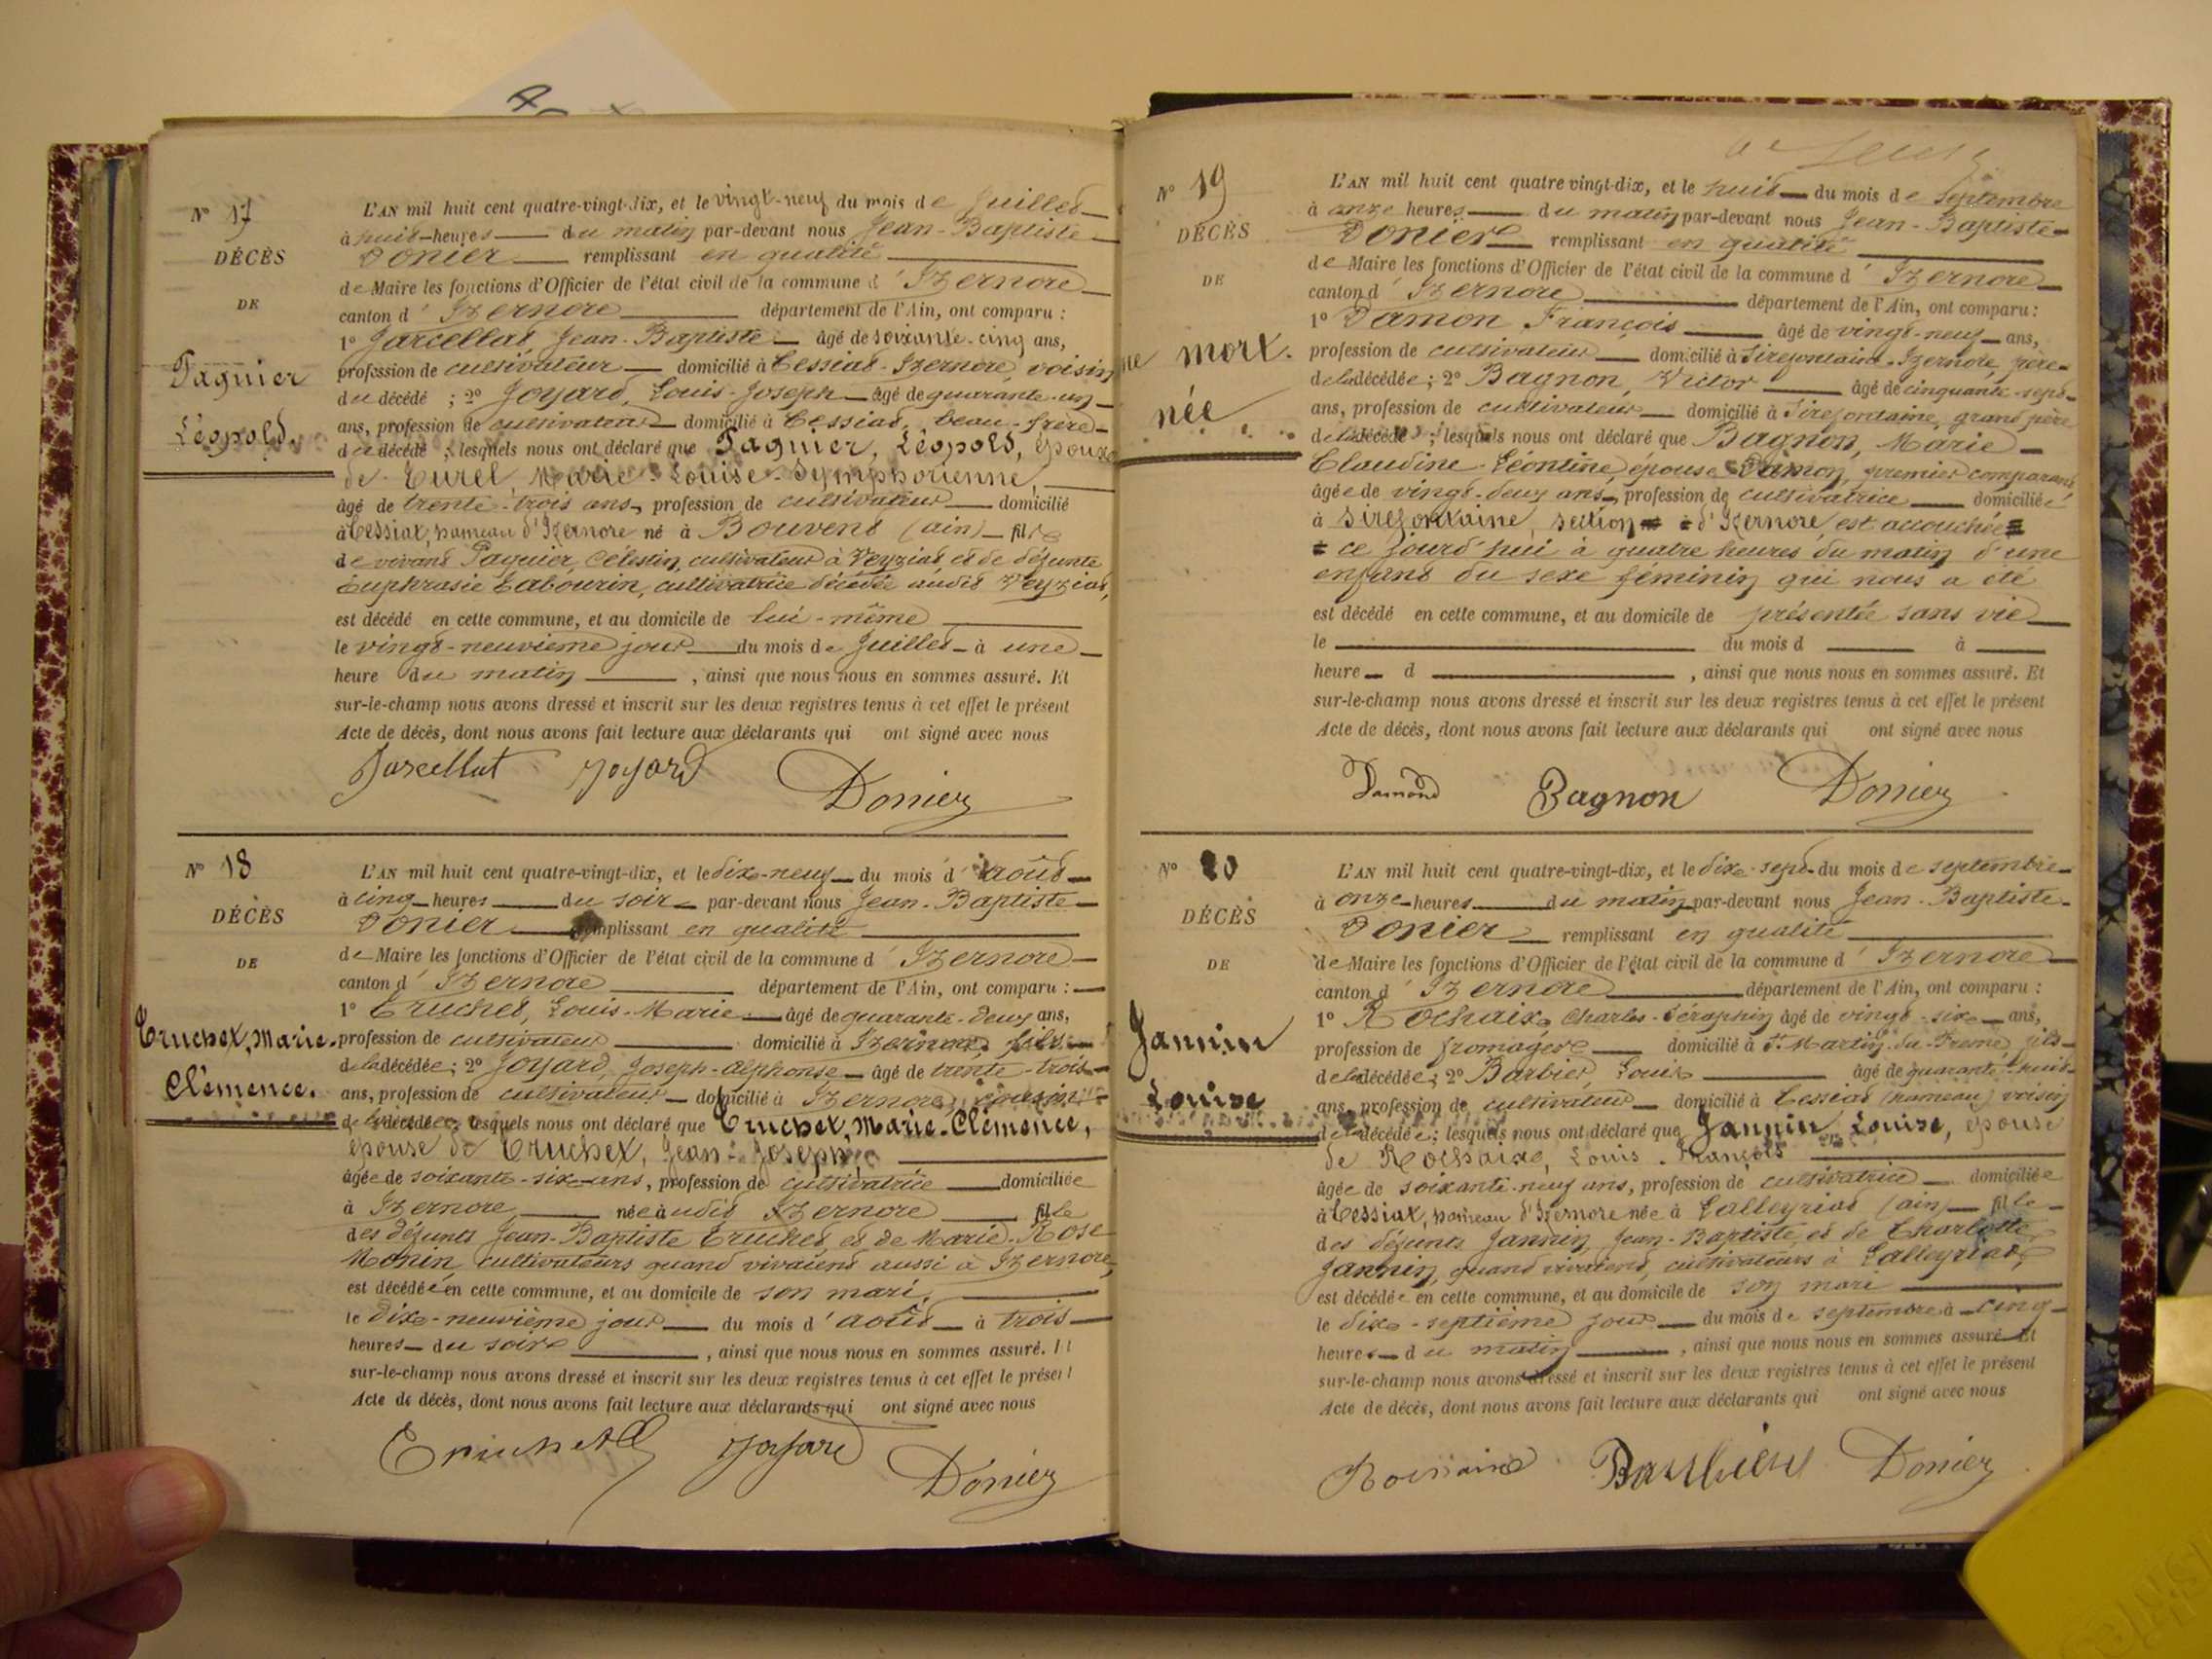 N° 17
DÉCÈS
DE
Paquier
Léopold.
L'AN mil huit cent quatre-vingt-dix, et le vingt-neuf du mois de Juillet
à huit heures du matin par-devant nous Jean-Baptiste
Donier remplissant en qualité
de Maire les fonctions d'Officier de l'état civil de la commune d'Izernore
canton d'Izernore département de l'Ain, ont comparu :
1° Jarcellat Jean-Baptiste âgé de soixante-cinq ans,
profession de cultivateur domicilié à Cessiat-Izernore, voisin
du décédé ; 2° Joyard, Louis-Joseph âgé de quarante-un
ans, profession de cultivateur domicilié à Cessiat, beau-frère
du décédé ; lesquels nous ont déclaré que Paquier, Léopold, époux
de Turel, Marie-Louise-Symphorienne,
âgé de trente-trois ans, profession de cultivateur domicilié
à Cessiat, hameau d'Izernore né à Bouvent (ain) fils
de vivant Paquier, Célestin, cultivateur à Veyziat, et de défunte
Euphrasie Tabourin, cultivatrice décédée audit Veyziat,
est décédé en cette commune, et au domicile de lui-même
le vingt-neuvième jour du mois de Juillet à une
heure du matin , ainsi que nous nous en sommes assuré. Et
sur-le-champ nous avons dressé et inscrit sur les deux registres tenus à cet effet le présent
Acte de décès, dont nous avons fait lecture aux déclarants qui ont signé avec nous
Jarcellat Joyard Donier
N° 18
DÉCÈS
DE
Truchet, Marie-
Clémence.
L'AN mil huit cent quatre-vingt-dix, et le dix-neuf du mois d'août
à cinq heures du soir par-devant nous Jean-Baptiste
Donier remplissant en qualité
de Maire les fonctions d'Officier de l'état civil de la commune d'Izernore
canton d'Izernore département de l'Ain, ont comparu :
1° Truchet, Louis-Marie âgé de quarante-deux ans,
profession de cultivateur domicilié à Izernore, fils
de la décédée ; 2° Joyard, Joseph-Alphonse âgé de trente-trois
ans, profession de cultivateur domicilié à Izernore, cousin
de la décédée, lesquels nous ont déclaré que Truchet, Marie-Clémence,
épouse de Truchet, Jean-Joseph,
âgée de soixante-six ans, profession de cultivatrice domiciliée
à Izernore née àudit Izernore fille
des défunts Jean-Baptiste Truchet, et de Marie-Rose
Monin, cultivateurs quand vivaient aussi à Izernore,
est décédée en cette commune, et au domicile de son mari,
le dix-neuvième jour du mois d'août à trois
heures du soir , ainsi que nous nous en sommes assuré. Et
sur-le-champ nous avons dressé et inscrit sur les deux registres tenus à cet effet le présent
Acte de décès, dont nous avons fait lecture aux déclarants qui ont signé avec nous
Truchet Joyard Donier
N° 19
DÉCÈS
DE
mort-
née
L'AN mil huit cent quatre vingt-dix, et le huit du mois de Septembre
à onze heures du matin par-devant nous Jean-Baptiste
Donier remplissant en qualité
de Maire les fonctions d'Officier de l'état civil de la commune d'Izernore
canton d'Izernore département de l'Ain, ont comparu :
1° Damon François âgé de vingt-neuf ans,
profession de cultivateur domicilié à Sirefontaine-Izernore, père
de la décédée ; 2° Bagnon, Victor âgé de cinquante-sept
ans, profession de cultivateur domicilié à Sirefontaine, grand père
de la décédée ; lesquels nous ont déclaré que Bagnon, Marie
Claudine-Léontine, épouse Damon, premier comparant
âgée de vingt-deux ans, profession de cultivatrice domiciliée
à Sirefontaine, section d'Izernore, est accouchée
ce jourd'hui à quatre heures du matin d'une
enfant du sexe féminin qui nous a été
est décédé en cette commune, et au domicile de présentée sans vie
le du mois d à
heure d , ainsi que nous nous en sommes assuré. Et
sur-le-champ nous avons dressé et inscrit sur les deux registres tenus à cet effet le présent
Acte de décès, dont nous avons fait lecture aux déclarants qui ont signé avec nous
Damond Bagnon Donier
N° 20
DÉCÈS
DE
Jannin
Louise
L'AN mil huit cent quatre-vingt-dix, et le dix-sept du mois de septembre
à onze heures du matin par-devant nous Jean-Baptiste
Donier remplissant en qualité
de Maire les fonctions d'Officier de l'état civil de la commune d'Izernore
canton d'Izernore département de l'Ain, ont comparu :
1° Rochaix, Charles-Séraphin âgé de vingt-six ans,
profession de fromager domicilié à St Martin-du-Frêne, fils
de la décédée ; 2° Barbier, Louis âgé de quarante-huit
ans, profession de cultivateur domicilié à Cessiat (hameau) voisin
de la décédée ; lesquels nous ont déclaré que Jannin Louise, épouse
de Rochaix, Louis-François
âgée de soixante-neuf ans, profession de cultivatrice domiciliée
à Cessiat, hameau d'Izernore née à Lalleyriat (ain) fille
des défunts Jannin, Jean-Baptiste, et de Charlotte
Jannin, quand vivaient, cultivateurs à Lalleyriat,
est décédée en cette commune, et au domicile de son mari
le dix-septième jour du mois de septembre à cinq
heures du matin , ainsi que nous nous en sommes assuré. Et
sur-le-champ nous avons dressé et inscrit sur les deux registres tenus à cet effet le présent
Acte de décès, dont nous avons fait lecture aux déclarants qui ont signé avec nous
Rochaix Barbier Donier